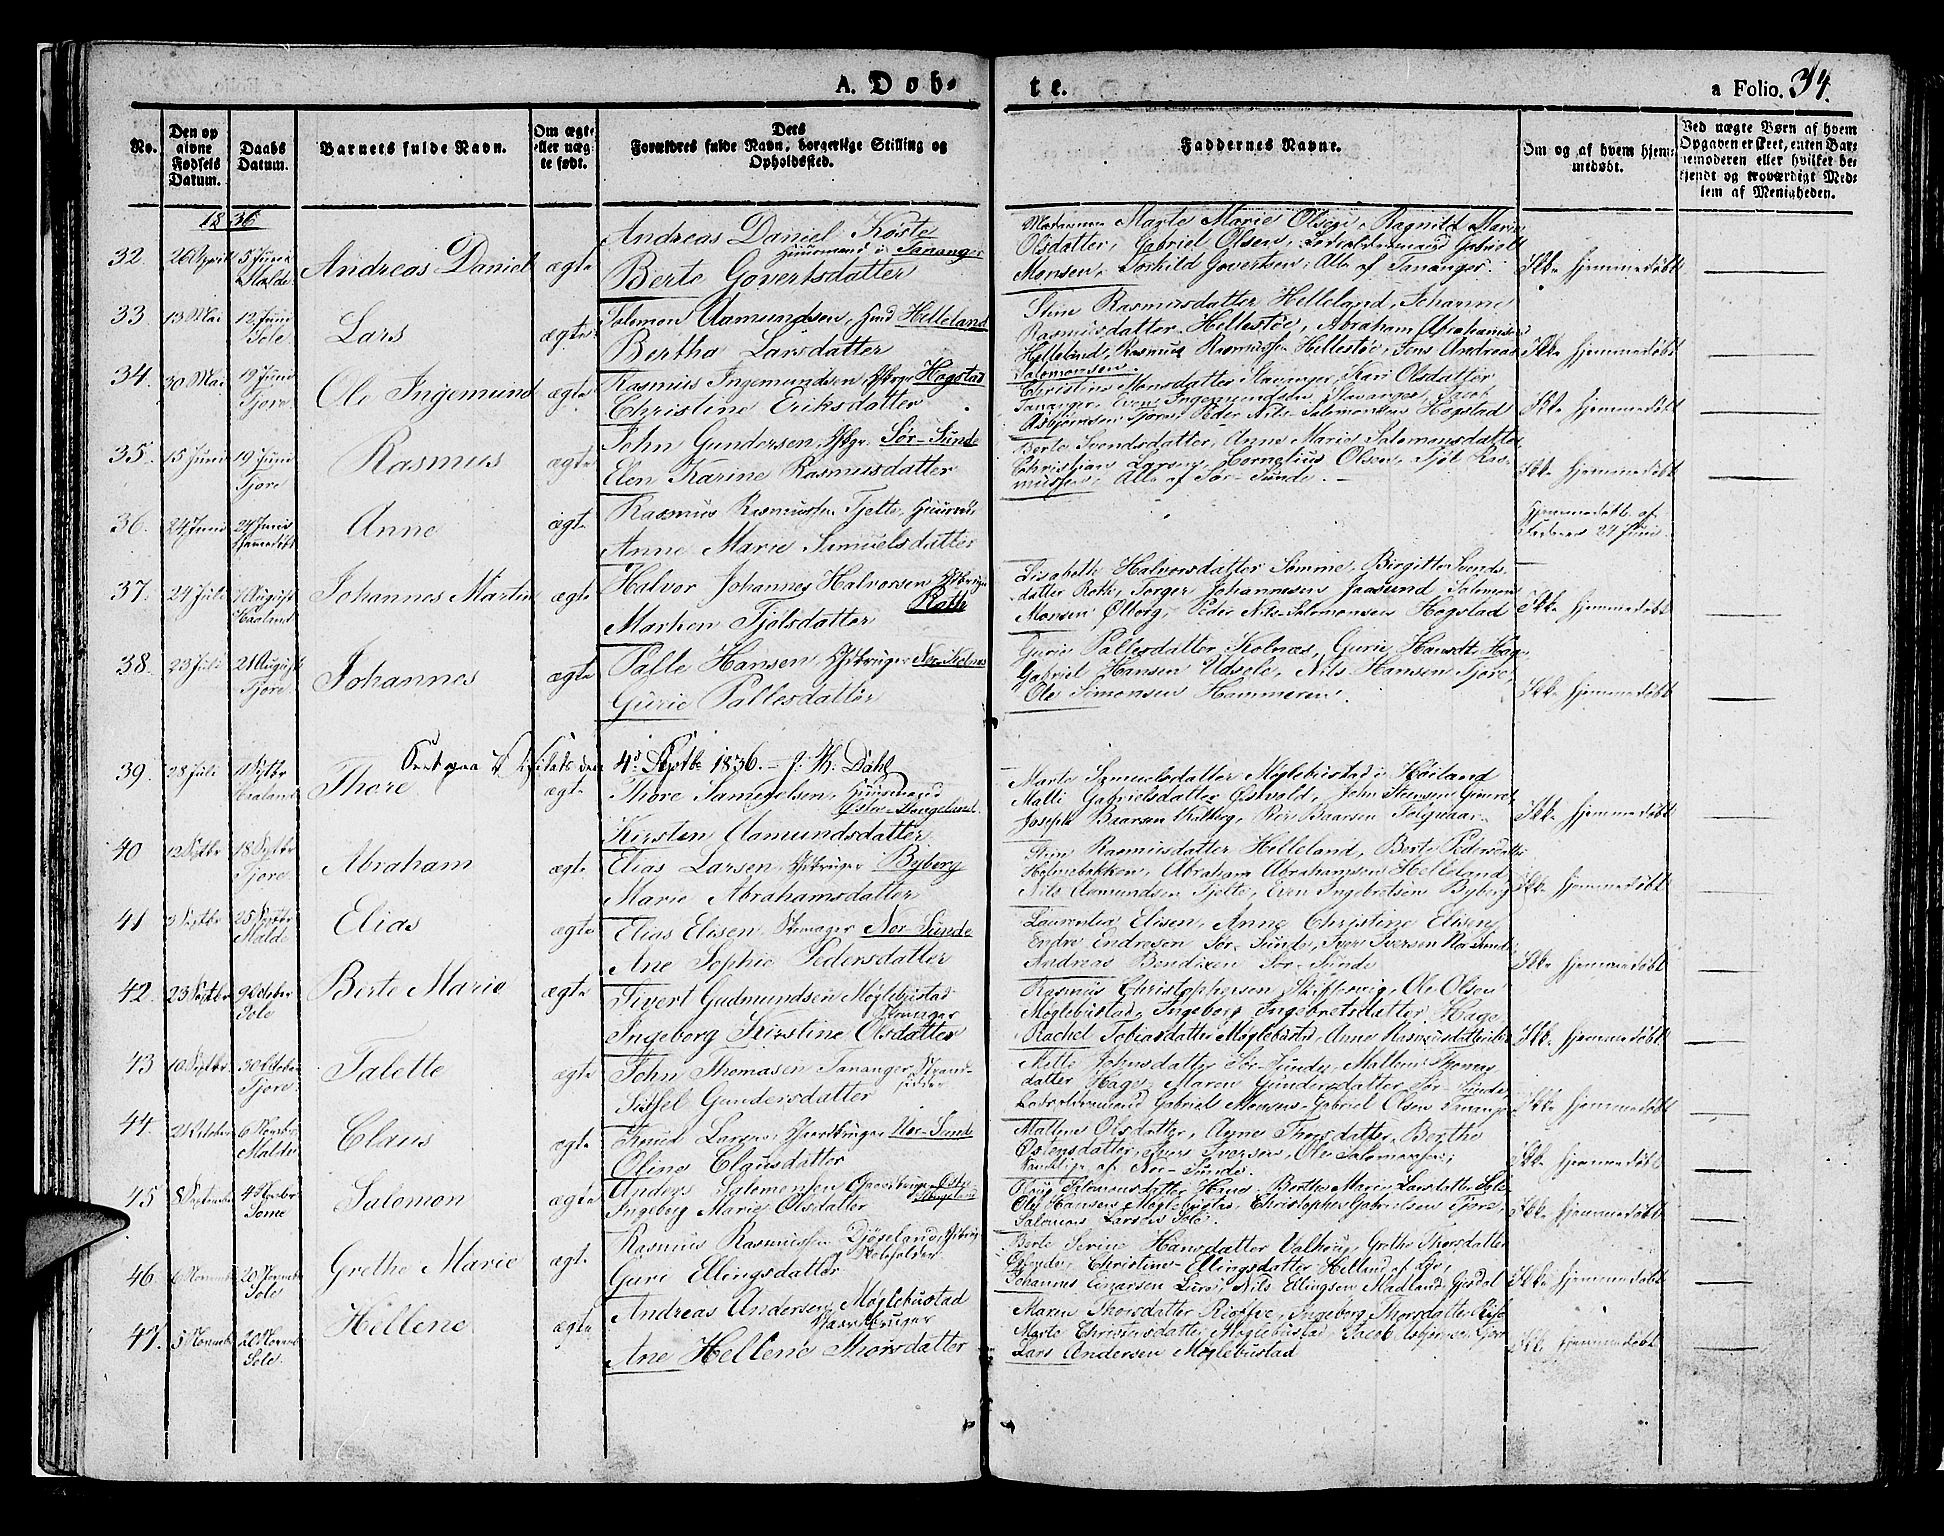 A. Døb-
te.
a Folio. 34.
No.
Den op givne Fødsels Datum.
Daabs Datum.
Barnets fulde Navn.
Om ægte eller uæg- te født.
Dets Forældres fulde Navn, borgerlige Stilling og Opholdssted.
Faddernes Navne.
Om og af hvem hjem- medøbt.
Ved uægte Børn af hvem Opgaven er skeet, enten Bar- nemoderen eller hvilket be- kjendt og troværdigt Med- lem af Menigheden.
1836
32. 26 April 5 Juni Malde Andreas Daniel ægte
Andreas Daniel Køste
Huusmand i Tananger
Berte Govertsdatter
Marte Marie Olsen, Ragnild Marie
Olsdatter, Gabriel Olsen, Gabriel
Monsen, Torkild Govertsen, Alle af Tananger.
Ikke hjemmedøbt
33. 13 Mai 12 Juni Sole Lars ægte
Salomon Aamundsen, Helleland
Bertha Larsdatter
Stine Rasmusdatter Helleland, Johanne
Rasmusdatter Hellestøe, Abraham Abrahamsen
Helleland, Rasmus Rasmussen Hellestøe, Jens Andreas
Salomonsen.
Ikke hjemmedøbt
34. 30 Mai 19 Juni Tjore Ole Ingemund ægte
Rasmus Ingemundsen, Hogstad
Christine Eriksdatter
Christine Monsdatter Stavanger, Kari Olsdatter
Tananger, Even Ingemundsen Stavanger, Jacob
Asbjørnsen Tjore, Peder Nils Salomonsen Hogstad
Ikke hjemmedøbt
35. 15 Juni 19 Juni Tjore Rasmus ægte
John Gundersen, Sør-Sunde
Elen Karine Rasmusdatter
Berte Svendsdatter, Anne Marie Salomonsdatter
Christian Larsen, Cornelius Olsen, Tjøl Ras-
mussen, Alle af Sør-Sunde.
Ikke hjemmedøbt
36. 24 Juni 24 Juni hjemmedøbt Anne ægte
Rasmus Rasmussen Tjelte,
Anne Marie Samuelsdatter
Hjemmedøbt af
Faderen 24 Juni
37. 24 Juli 7 August Haaland Johannes Martin ægte
Halvor Johannes Halvorsen
Roth
Marhen Tjølsdatter
Lisabeth Halvorsdatter Sømme, Birgitte Svends-
datter Roth, Torger Johannesen Jaasund, Solomon
Monsen Ølborg, Peder Nils Salomonsen Hogstad
Ikke hjemmedøbt
38. 23 Juli 21 August Tjore Johannes ægte
Palle Hansen Nor-Kolnes
Gurie Pallesdatter
Gurie Pallesdatter Kolnæs, Gurie Hansdt. Hage
Gabriel Hansen Udsole, Nils Hansen Tjore,
Ole Simonsen Hammeren.
Ikke hjemmedøbt
Seet paa Visitats den 4d Septbr 1836. J. K. Dahl
39. 28 Juli 11 Septbr Haaland Thore ægte
Thore Samuelsen, Huusmand
Østre-Hougeland
Kirsten Aamundsdatter
Marte Samuelsdatter Møglebustad i Høiland
Malli Gabrielsdatter Østvold, John
Joseph Baarsen Kolberg, Peer Baarsen
Ikke hjemmedøbt
40 12 Septbr 18 Septbr Tjore Abraham ægte
Elias Larsen, Byberg
Marie Abrahamsdatter
Stine Rasmusdatter Helleland, Berte Pedersdatter
Holmebakken, Abraham Abrahamsen Helleland
Nils Aamundsen Tjelte, Even Ingebretsen Byberg
Ikke hjemmedøbt
41 3 Septbr 25 Septbr Malde Elias ægte
Elias Elisen Skomager Nor-Sunde
Ane Sophie Pedersdatter
Laurentia Elisen, Anne Christine Elisen
Endre Endresen Sør-Sunde, Iver Iversen Nor Sunde
Andreas Bendixen Sør-Sunde
Ikke hjemmedøbt
42. 23 Septbr 9 October Sole Berte Marie ægte
Sivert Gudmundsen Møglebustad
Ingeborg Kirstine Olsdatter
Rasmus Christophersen Skiftesvig, Ole Olsen
Møglebustad, Ingeborg Ingebretsdatter Hage
Rachel Tobiasdatter Møglebustad, Anne Rasmusdatter
Ikke hjemmedøbt
43 10 Septbr 30 October Tjore Talette ægte
John Thomasen Tananger, Strand-
sidder
Sissel Gundersdatter
Mette Johnsdatter Sør-Sunde, Mallene Thomas
datter Hage, Maren Gundersdatter Sør-Sunde,
Gabriel Monsen, Gabriel Olsen Tananger
Ikke hjemmedøbt
44 21 October 6 Novbr Malde Claus ægte
Knud Larsen, Gaardbruger Nor-Sunde
Oline Clausdatter
Mallene Olsdatter, Anne Thorsdatter, Berthe
Østensdatter, Iver Iversen, Ole Salomonsen,
samtlige af Nor-Sunde.
Ikke hjemmedøbt
45 8 September 4 Novbr Sømme Salomon ægte
Anders Salomonsen Gaardbruger Østre
Hougeland
Ingebrg Marie Olsdatter
Salomonsdatter Berthe Marie Larsdatter Sole
Ole Hansen Møglebustad, Christopher Gabrielsen Tjore,
Salomon Larsen Sole.
Ikke hjemmedøbt
46. 6 Novemb 20 Novemb Sole Grethe Marie ægte
Rasmus Rasmussen Djøseland,
Guri Ellingsdatter
Berte Serine Hansdatter Valhøug, Grethe Thorsdatter
Christine Ellingsdatter Helland af Lye,
Johannes Einarsen Lura, Nils Ellingsen Madland, Gjesdal
Ikke hjemmedøbt
47. 5 Novemb 20 Novemb Sole Hellene ægte
Andreas Andersen Møglebustad
Gaardbruger
Ane Hellene Thorsdatter
Maren Thorsdatter Risøe, Ingeborg Thorsdatter Risøe
Marte Christensdatter Møglebustad, Jacob Asbjørnsen Tjore
Lars Andersen Møglebustad
Ikke hjemmedøbt